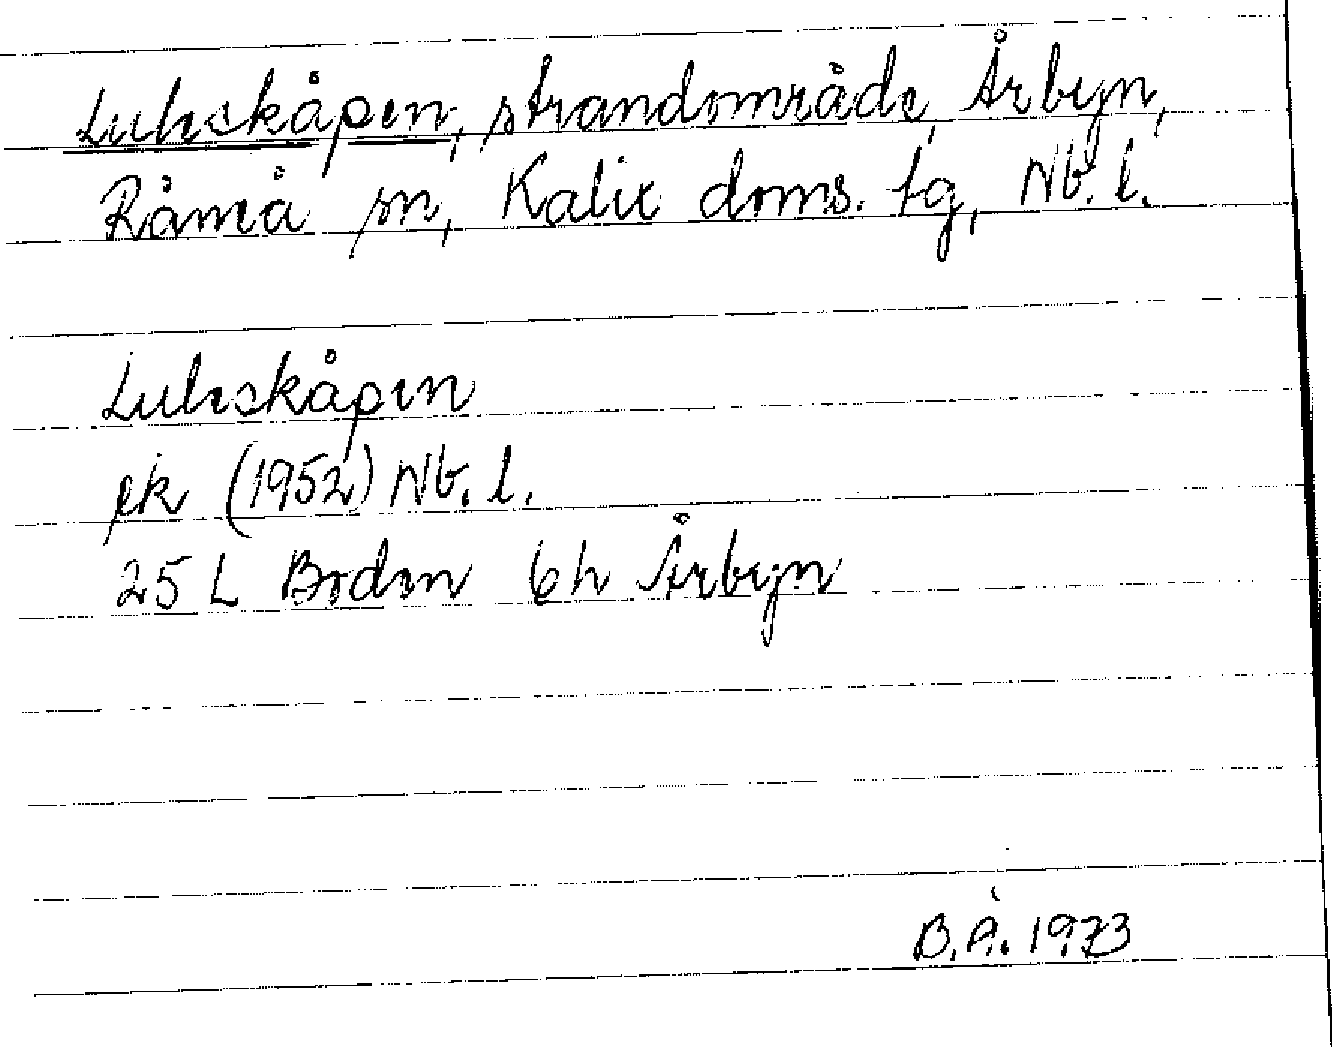 Luleskåpen, strandområde, Årbyn,
Råneå sn, Kalix doms. tg, Nb. l.
Luleskåpen
ek (1952) Nb. l.
25 L Boden 6 h Årbyn
B.Å. 1973